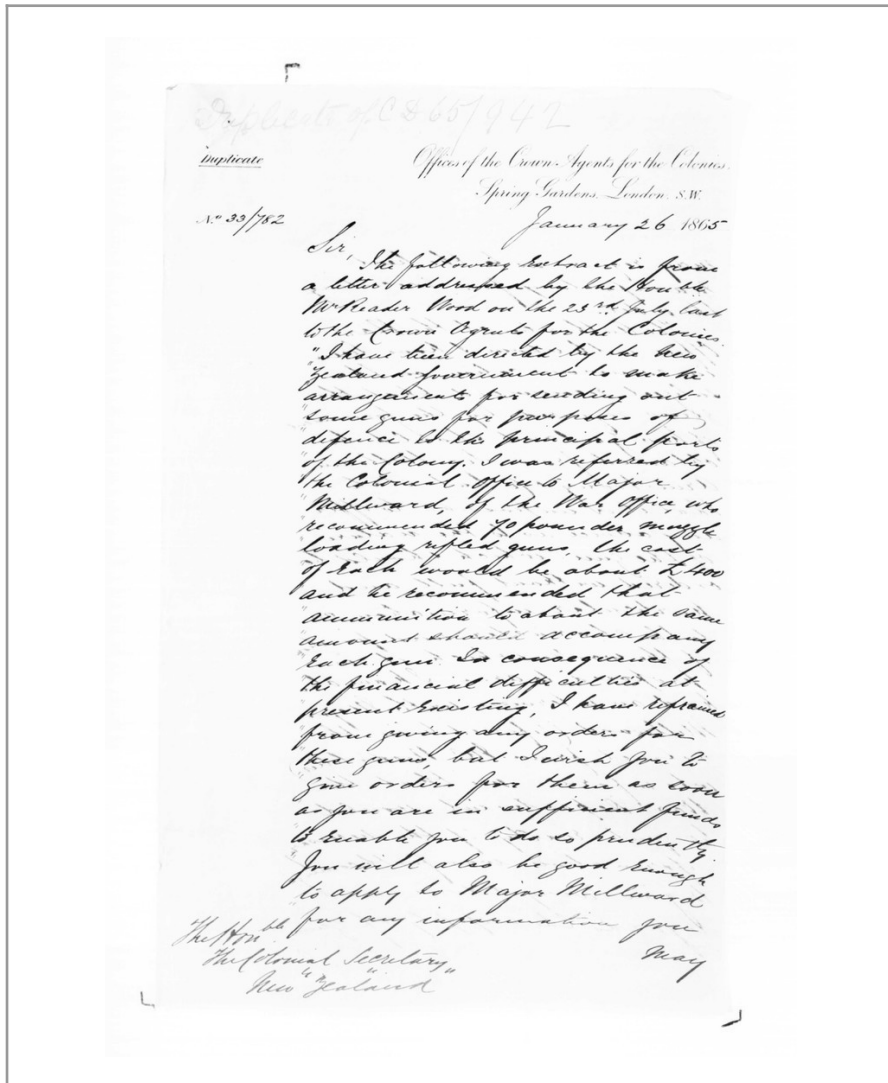 Duplicate of CD 65/942
Duplicate
Offices of the Crown Agents for the Colonies,
Spring Gardens, London, S.W.
No 33/782
January 26 1865
Sir,
The following Extract is from
a letter addressed by the Honble
Mr Reader Wood on the 23rd July last
to the Crown Agents for the Colonies.
"I have been directed by the New
"Zealand Government to make
"arrangements for sending out
"some guns for purposes of
"defence to the principal ports
"of the Colony. I was referred by
"the Colonial Office to Major
"Millward, of the War Office, who
"recommended 70 pounder muzzle
"loading rifled guns, the cost
"of each would be about £400
"and he recommended that
"ammunition to about the same
"amount should accompany
"Each gun. In consequence of
"the financial difficulties at
"present Existing, I have refrained
"from giving any orders for
"these guns, but I wish you to
"give orders for them as soon
"as you are in sufficient funds
"to Enable you to do so prudently
"You will also be good Enough
"to apply to Major Millward
"for any information you
may
The Honble
The Colonial Secretary
New Zealand